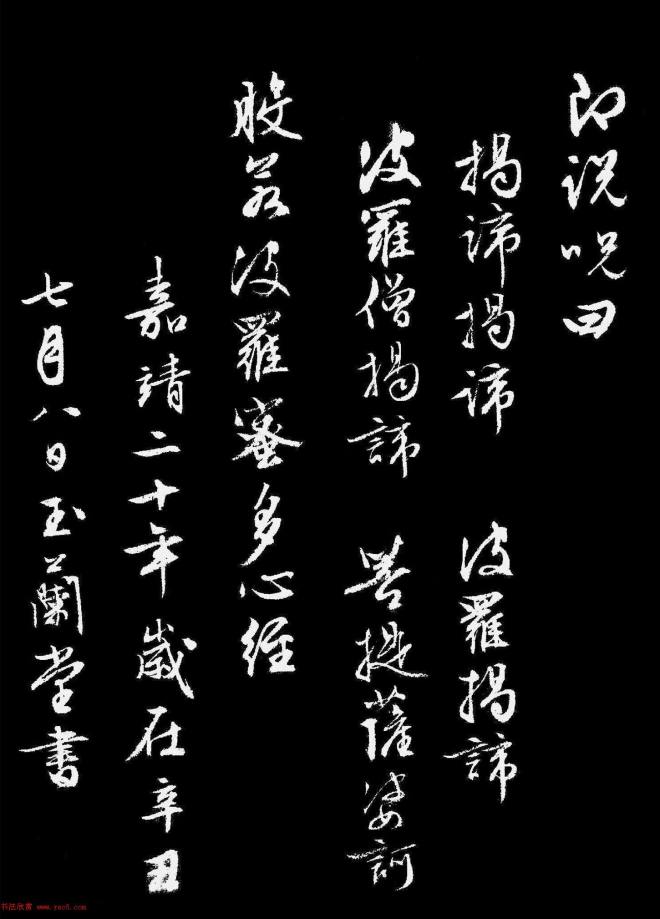 即说呪曰
揭諦揭諦 波羅揭諦
波羅僧揭諦 菩提薩婆訶
般若波羅蜜多心經
嘉靖二十年歲在辛丑
七月八日玉蘭堂書
书法欣赏 www.rac5.com